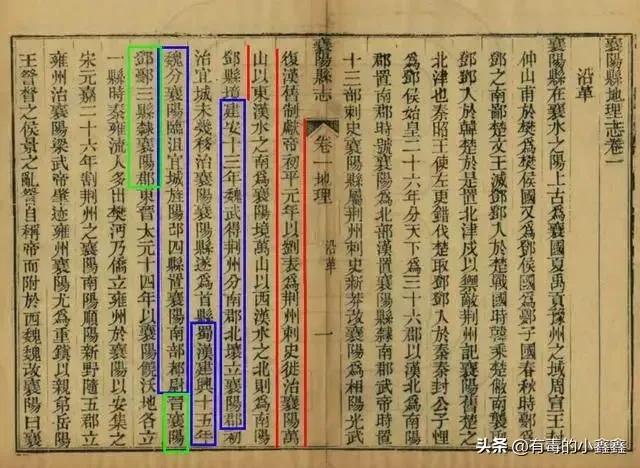 襄陽縣地理志卷一
沿革
襄陽縣在襄水之陽上古爲襄國夏禹貢豫州之域周宣王封
仲山甫於樊爲樊侯國又爲鄧侯國爲鄾子國春秋時鄾爲
鄧之南鄙楚文王滅鄧鄧入於楚戰國時韓乘楚敝南襲至
鄧鄧入於韓楚於是置北津戍以禦敵荊州記襄陽舊楚之
北津也秦昭王使左更錯伐楚取鄧鄧入於秦秦封公子悝
爲鄧侯始皇二十六年分天下爲三十六郡以漢水
郡置南郡時號襄陽爲北部漢置襄陽縣隸南郡武帝時置
十三部刺史襄陽縣屬荊州刺史新莽改襄陽爲相陽光武
襄陽縣志
卷一 地理
沿革
一
復漢舊制獻帝初平元年以劉表爲荊州刺史徙治襄陽萬
山以東漢水之南爲襄陽境萬山以西漢水之北則爲南陽
鄧縣境建安十三年魏武得荊州分南郡北壤立襄陽郡初
治宜城未幾移治襄陽襄陽縣遂爲首縣蜀漢建興十五年
魏分襄陽臨沮宜城旍陽邔四縣置襄陽南部都尉晉襄陽
鄧鄾三縣隸襄陽郡東晉太元十四年以襄陽饒沃地各立
一縣時秦雍流人多出樊沔乃僑立雍州於襄陽以安集之
宋元嘉二十六年割荊州之襄陽南陽順陽新野隨五郡立
雍州治襄陽梁武帝肇迹雍州襄陽尤爲重鎮以親弟岳陽
王詧督之侯景之亂詧自稱帝而附於西魏魏改襄陽曰襄
头条 @有毒的小鑫鑫